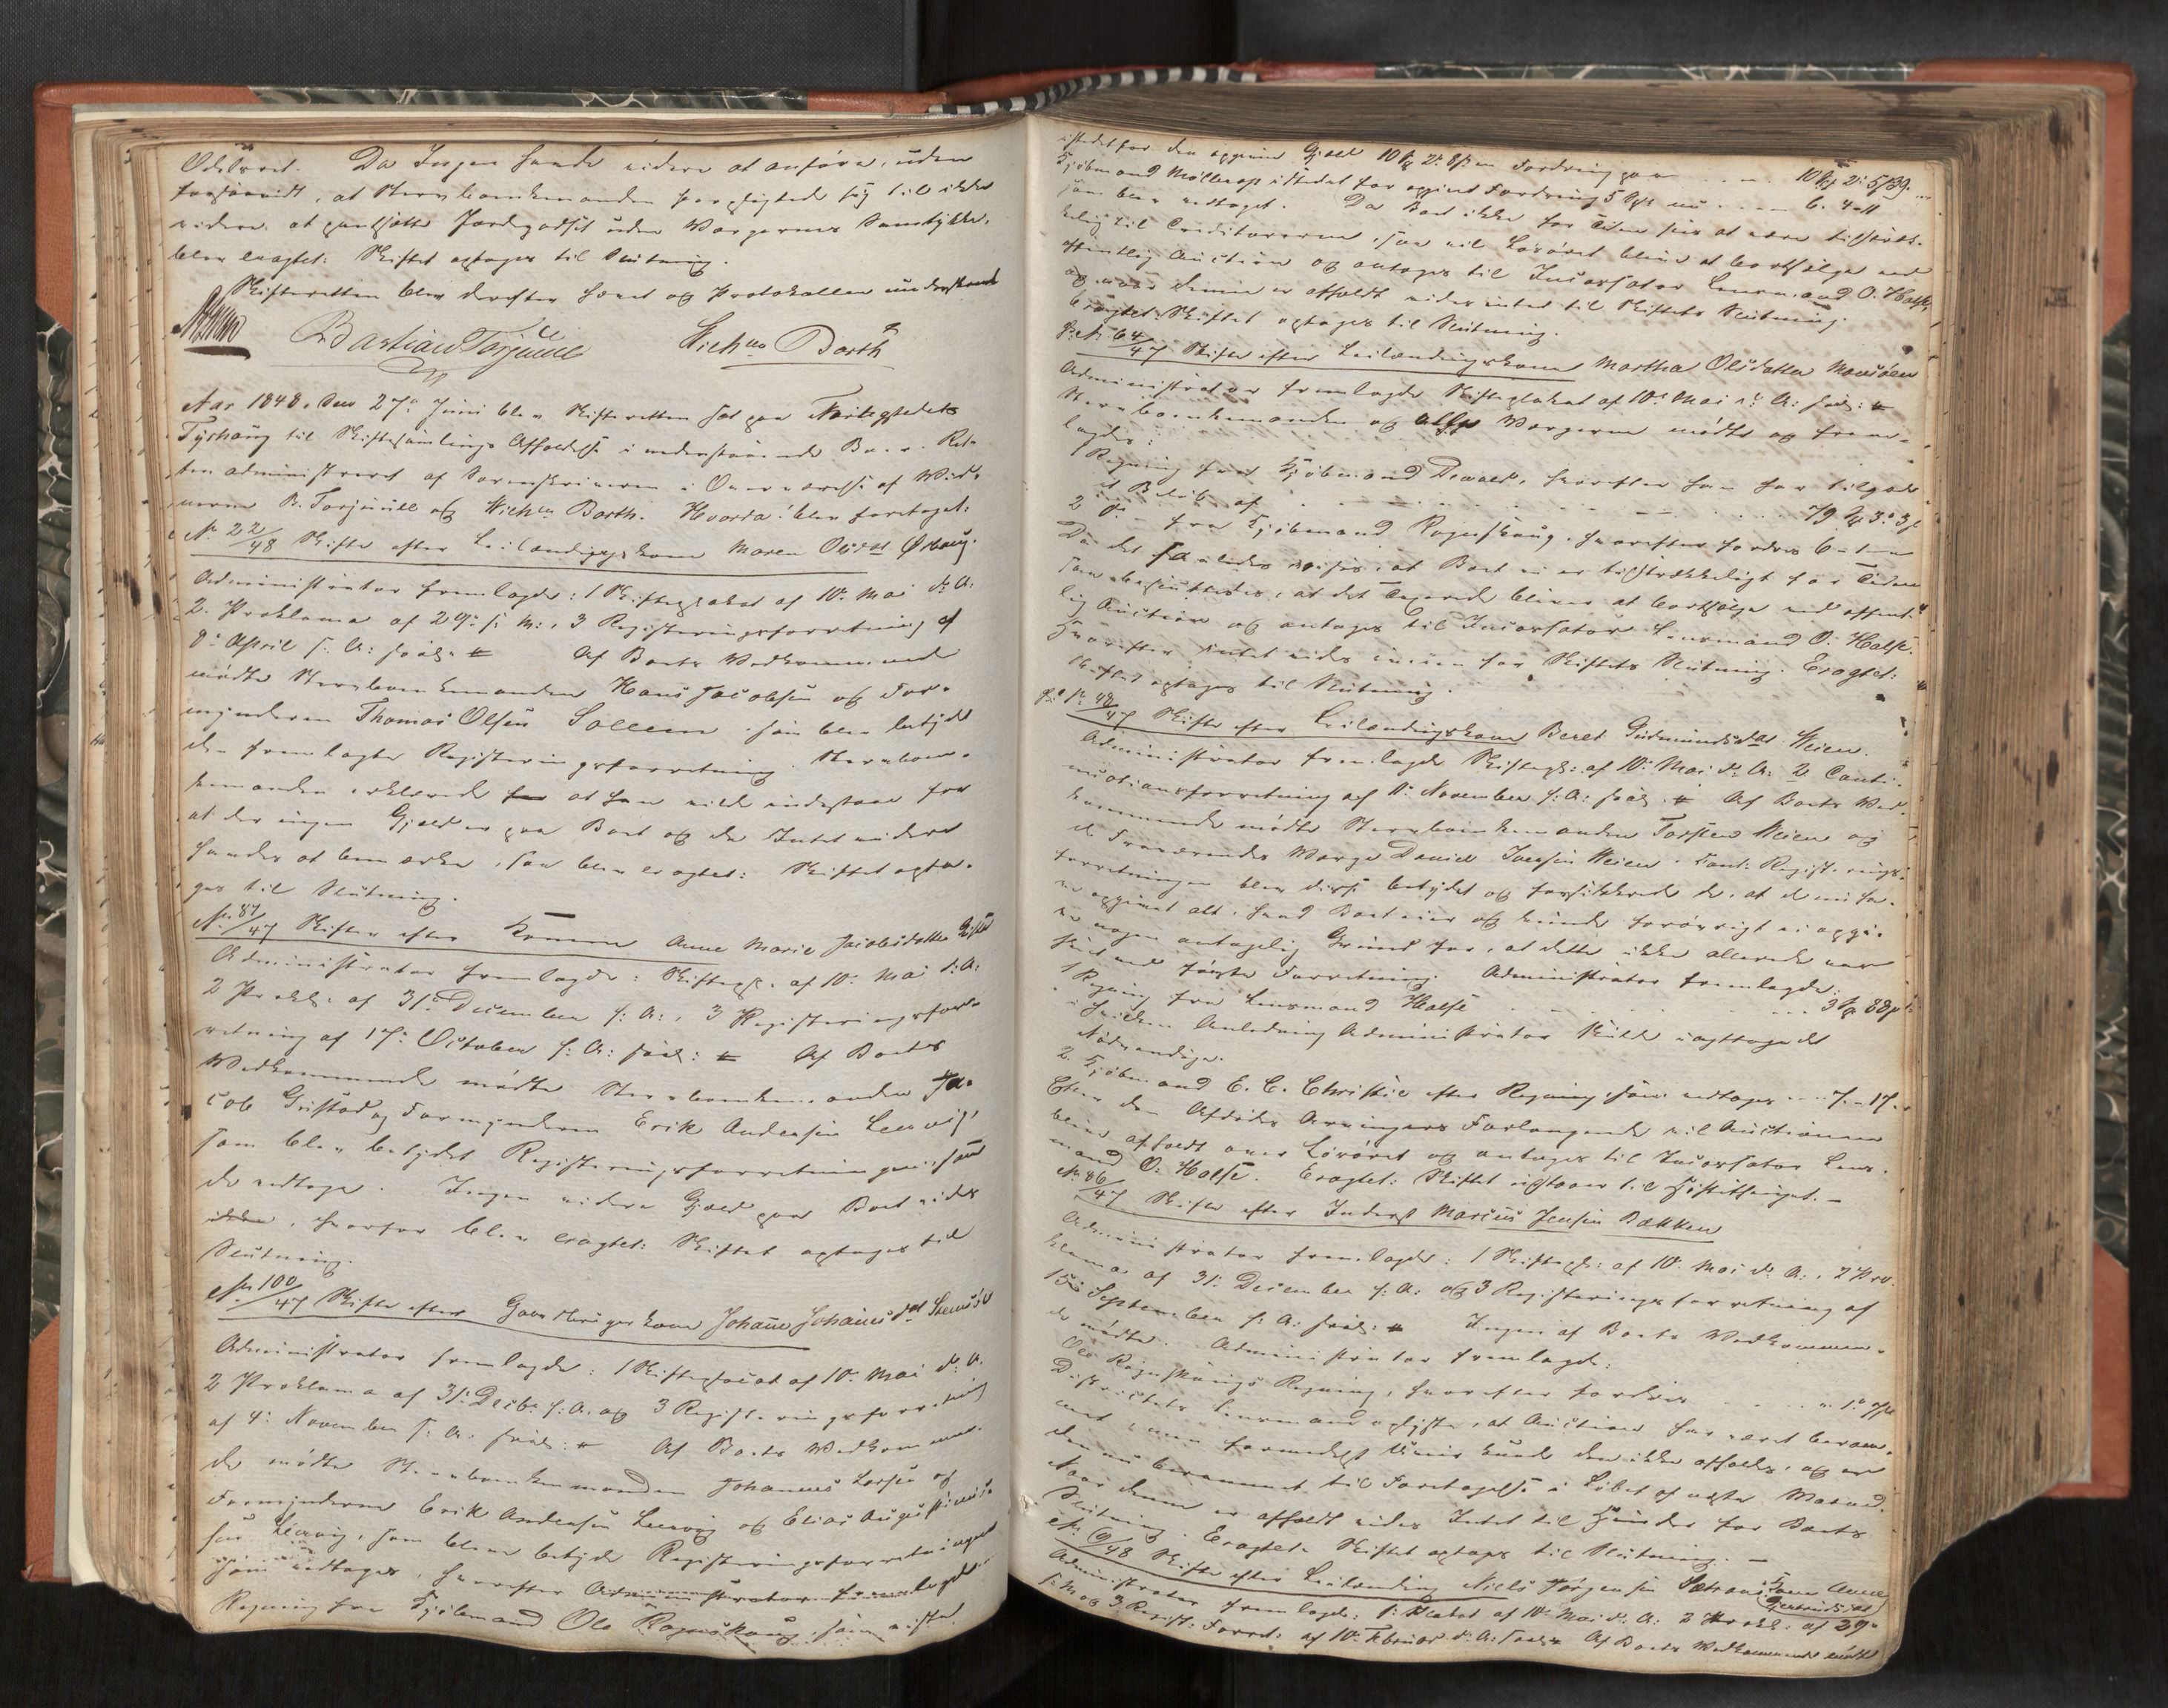 Odelsret. Da Ingen havde videre at anføre, uden
forsaavidt, at Stervboenkemanden forpligtede sig til ikke
videre at pantsætte Jordegodset uden Værgernes Samtykke,
blev eragtet: Skiftet optages til Slutning.
Skifteretten blev derefter hævet og Protokollen underskrevet
Bastian Torjulle Wichm Barth
Aar 1848, den 27de Juni blev Skifteretten sat paa
til Skiftesamlings Afholdelse i nedenstaaende Boer. Ret-
ten administreret af Sorenskriveren i Overværelse af Vid-
nerne B. Torjulle og Wichm Barth. Hvorda blev foretaget:
No 22/48 Skifte efter Leilændingskone Maren Olsdat
Administrator fremlagde: 1 Skifteplakat af 10de Mai d: A:
2. Proklama af 29de s: M:, 3 Registeringsforretning af
8de April s: A: saal: Af Boets Vedkommende
mødte Stervboenkemanden Hans Jacobsen og For-
mynderen Thomas Olsen Solleem som blev betydet
den fremlagte Registeringsforretning. Stervboen-
kemanden erklærede at han vilde indestaae for
at der ingen Gjæld er paa Boet og da Intet videre
havdes at bemærke, saa blev eragtet: Skiftet opta-
ges til Slutning.
No 87/47 Skifte efter Konen Anne Marie Jacobsdatter
Administrator fremlagde: Skiftepl. af 10de Mai d: A:
2 Prokl: af 31te December f: A:, 3 Registeringsfor-
retning af 17de October f: A: saal: Af Boets
Vedkommende mødte Stervboenkemanden Ja-
cob Gustad og Formynderen Erik Andersen Leervig,
som blev betydet Registeringsforretningen, som
de vedtage. Ingen videre Gjæld paa Boet vides
, hvorfor blev eragtet: Skiftet optages til
Slutning.
No 100/47 Skifte efter Gaardbrugerkone Johanne Johannesdat
Administrator fremlagde: 1 Skifteplacat af 10de Mai d: A.
2 Proklama af 31te Decbr f: A. og 3 Registeringsforretning
af 4de November f: A: saal: Af Boets Vedkommen-
de mødte Stervboenkemanden Johannes Larsen og
Formynderne Erik Andersen Leervig og Elias Augustinus-
sen Leervig, som blev betydet Registeringsforretningen
som vedtages, hvorefter Administrator fremlagde
Regning fra Kjøbmand Ole Ragnskoug, som istel
istedetfor den opgivne Gjæld 10 Fordring paa 10
Kjøbmand Møllerop istedet for opgivet Fordring 5 nu 6. 4
som blev vedtaget. Da Boet ikke for Tiden sees at være tilstræk-
kelig til Creditorerne, saa vil Løsøret blive at bortsælge ved
offentlig Auction og antages til Incassator Lensmand O. Halse,
og naar denne er afholdt vides intet til Skiftets Slutning.
Eragtet: Skiftet optages til Slutning.
No 64/47 Skifte efter Leilændingskone Martha Olsdatter
Administrator fremlagde Skifteplakat af 10de Mai d: A: saal:
Stervboenkemanden og Værgerne mødte og frem-
lagdes:
1 Regning fra Kjøbmand Dewold, hvorefter han har tilgode
et Beløb af 79
2 do fra Kjøbmand Ragnskoug, hvorefter fordres 6
Da det saaledes vises, at Boet ei er tilstrækkeligt for Tiden
saa besluttedes, at det Ceverede bliver at bortsælge ved offent-
lig Auction og antages til Incassator Lensmand O. Halse.
Hvorefter intet vides imod for Skiftets Slutning. Eragtet:
Skiftet optages til Slutning.
No 48/47 Skifte efter Leilændingskone Beret Gudmundsdat Weien.
Administrator fremlagde Skiftepl: af 10de Mai d: A: 2 Conti-
nuationsforretning af 1de November f: A: saal: Af Boets Ved-
kommende mødte Stervboenkemanden Torsten Weien og
de Fraværendes Værge Daniel Iversen Weien. Registerings-
forretningen blev disse betydet og forsikkrede de, at de nu ha-
ve opgivet alt, hvad Boet eier og kunde forøvrigt ei opgi-
ve nogen antagelig Grund for, at dette ikke allerede var
skeet ved første Forretning. Administrator fremlagde:
1 Regning fra Lensmand Halse 3
i hvilken Anledning Administrator skulde iagttage det
Nødvendige.
2. Kjøbmand E. C. Christie efter Regning som vedtages 7. 17.
Efter den Afdødes Arvingers Forlangende vil Auctionen
blive afholdt over Løsøret og antages til Incassator Lens-
mand O. Halse. Eragtet: Skiftet udstaaer til Høsttinget. —
No 86/47 Skifte efter Inderst Marcus Jensen Bakken
Administrator fremlagde: 1 Skiftepl: af 10de Mai d: A:, 2 Pro-
klama af 31te December f: A: og 3 Registeringsforretning af
15de September f: A: saal: Ingen af Boets Vedkommen-
de mødte. Administrator fremlagde:
Ole Ragnskougs Regning, hvorefter fordres
Districtets Lensmand oplyste, at Auction har været beram-
met men formedelst kunde den ikke afholdes, og er
den nu berammet til Foretagelse i Løbet af næste Maaned.
Naar denne er afholdt vides Intet til Hinder for Boets
Slutning. Eragtet: Skiftet optages til Slutning. —
No 6/48 Skifte efter Leilænding Niels Jørgensen Kone Anne
Gjertrudsdat
Administrator fremlagde: 1. Plakat af 10de Mai d: A: 2 Prokl: af 29de
s: M. og 3 Regist: Forret: af 10de Februar d: A: saal: Af Boets Vedkommende mødte